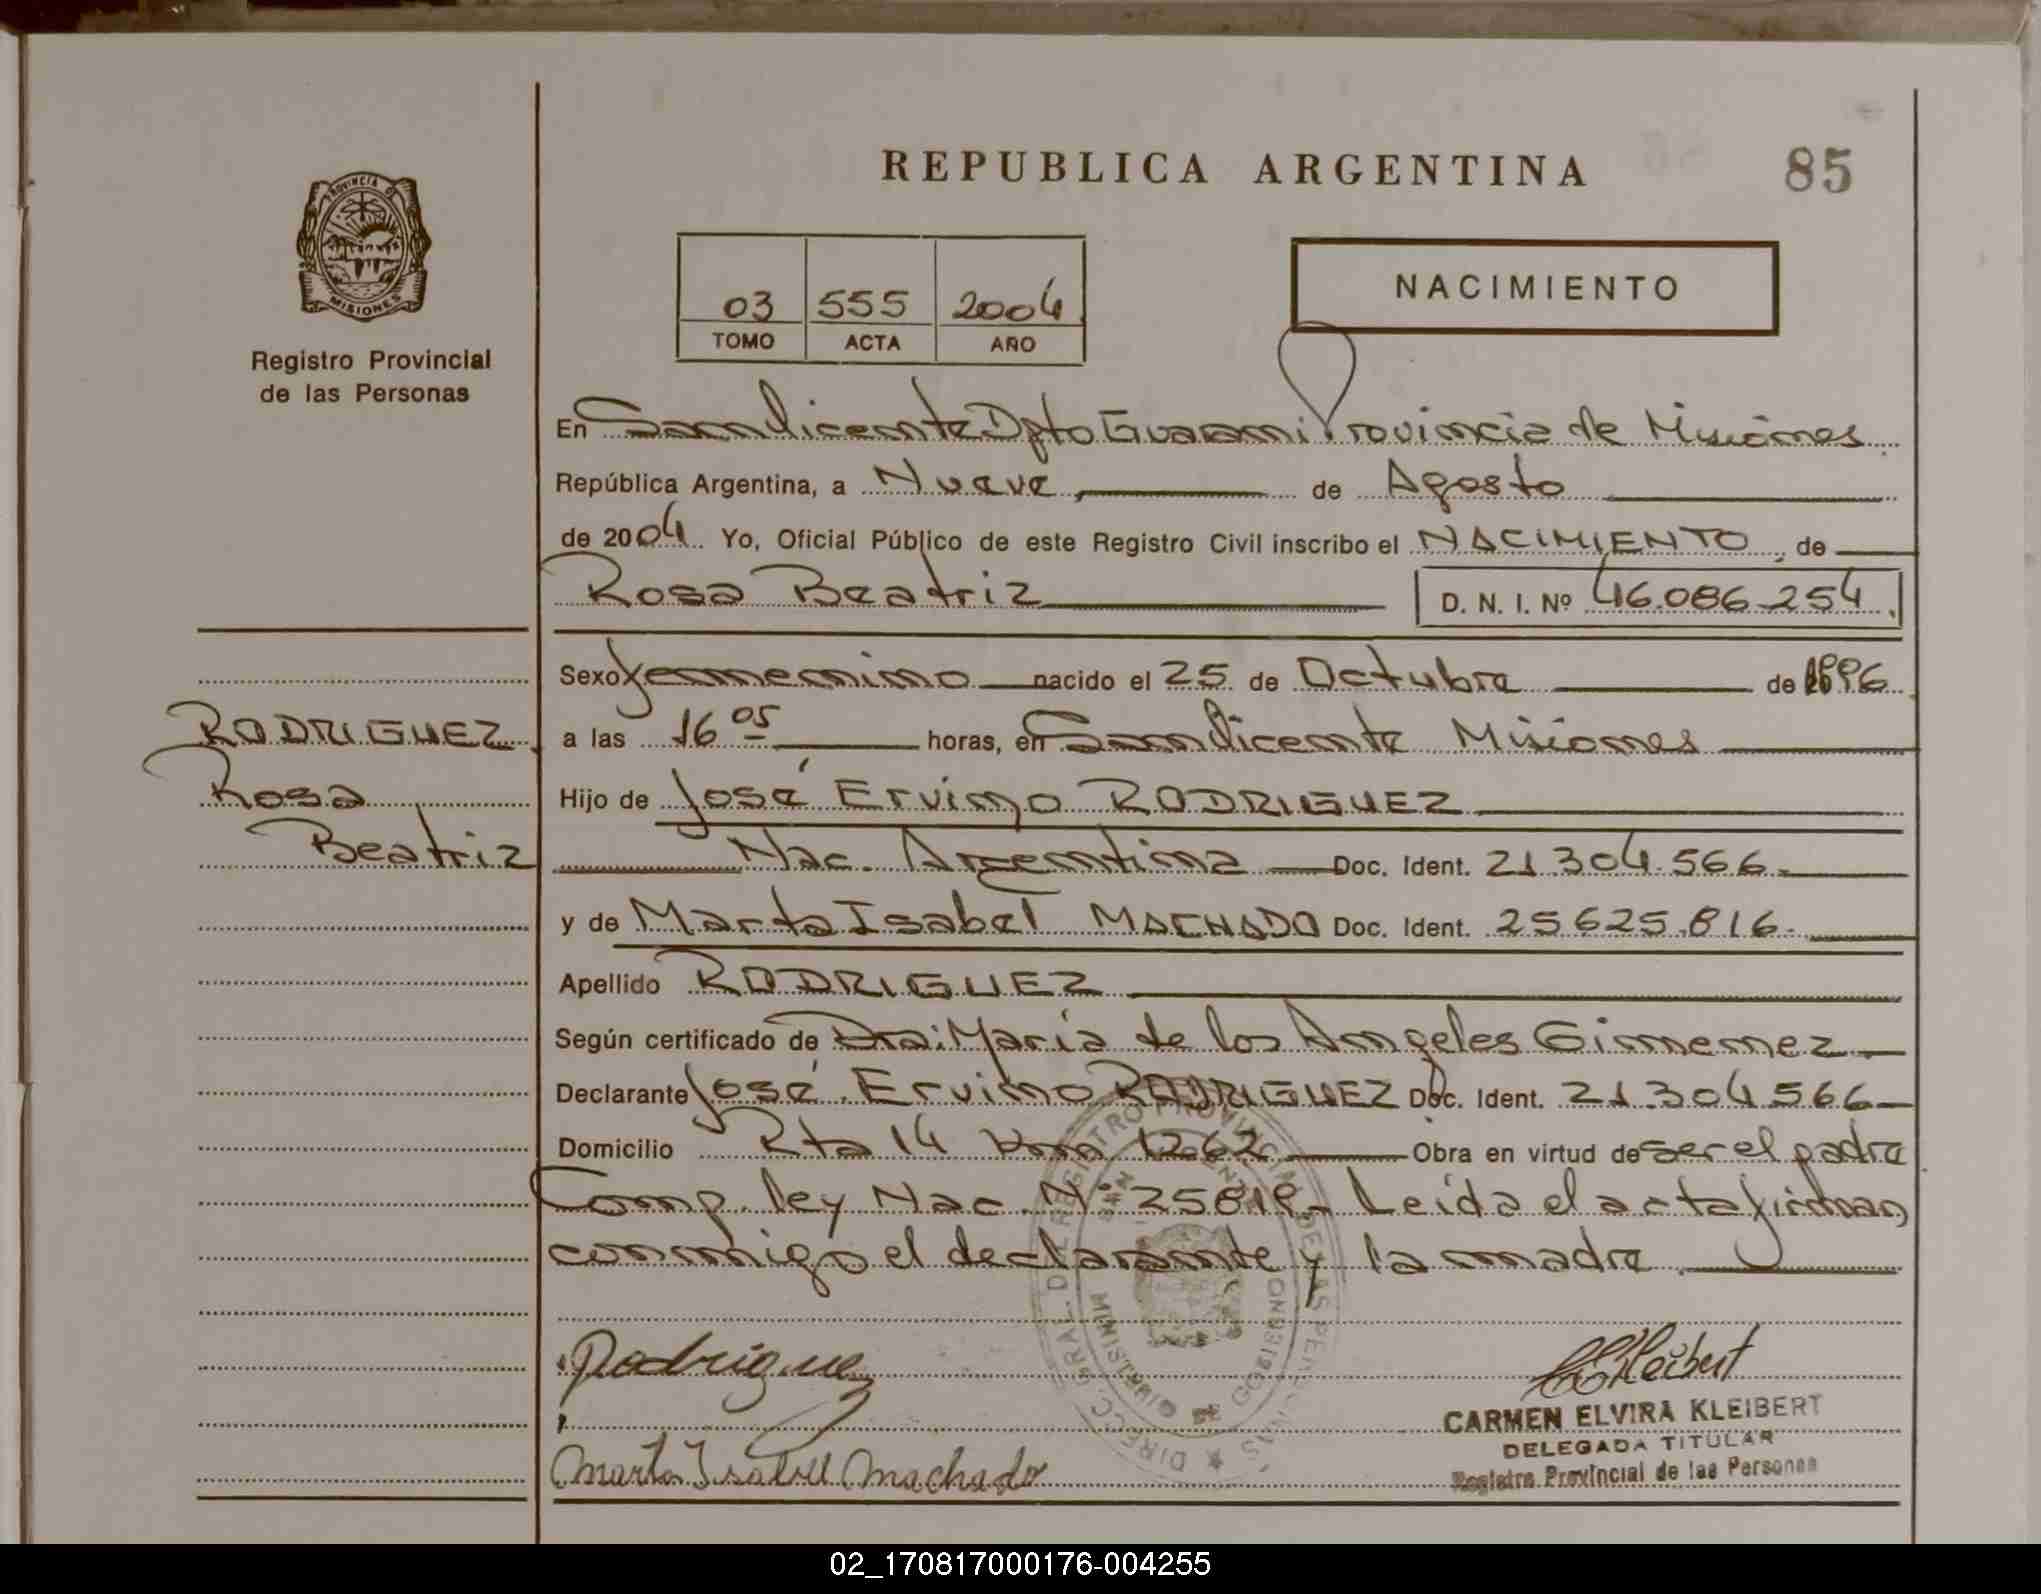 REPUBLICA ARGENTINA
85
PROVINCIA DE
MISIONES
Registro Provincial
de las Personas
03 555 2004
TOMO ACTA AÑO
NACIMIENTO
En San Vicente Dpto Guarani Provincia de Misiones
República Argentina, a Nueve de Agosto
de 2004 Yo, Oficial Público de este Registro Civil inscribo el NACIMIENTO de
Rosa Beatriz D. N. I. Nº 46.086.254
RODRIGUEZ
Rosa
Beatriz
Sexo femenino nacido el 25 de Octubre de 1996
a las 16 05 horas, en San Vicente Misiones
Hijo de José Ervino RODRIGUEZ
Nac. Argentina Doc. Ident. 21.304.566.
y de Marta Isabel MACHADO Doc. Ident. 25.625.816.
Apellido RODRIGUEZ
Según certificado de Dra: María de los Angeles Gimenez
Declarante José Ervino RODRIGUEZ Doc. Ident. 21.304.566
Domicilio Rta 14 Km 1262 Obra en virtud de ser el padre
Comp. ley Nac. Nº 25819. Leída el acta firman
conmigo el declarante y la madre.
Rodriguez
CKleibert
CARMEN ELVIRA KLEIBERT
DELEGADA TITULAR
Registro Provincial de las Personas
Marta Isabel Machado
02_170817000176-004255